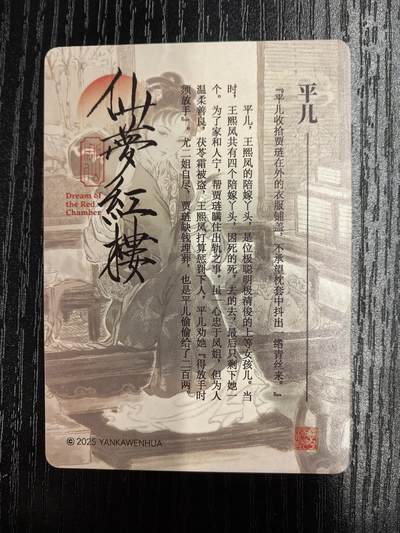 平儿
『平儿收拾贾琏在外的衣服铺盖，不承望枕套中抖出一绺青丝来。』
平儿，王熙凤的陪嫁丫头，是位极聪明极清俊的上等女孩儿。当
时，王熙凤共有四个陪嫁丫头，因死的死，去的去，最后只剩下她一
个。为了家和人宁，帮贾琏瞒住出轨之事，虽一心忠于凤姐，但为人
温柔善良，茯苓霜被盗，王熙凤打算惩罚下人，平儿劝她『得放手时
须放手』。尤二姐自尽，贾琏缺钱埋葬，也是平儿偷偷给了二百两。
仙夢紅樓
Dream of
the Red
Chamber
© 2025 YANKAWENHUA